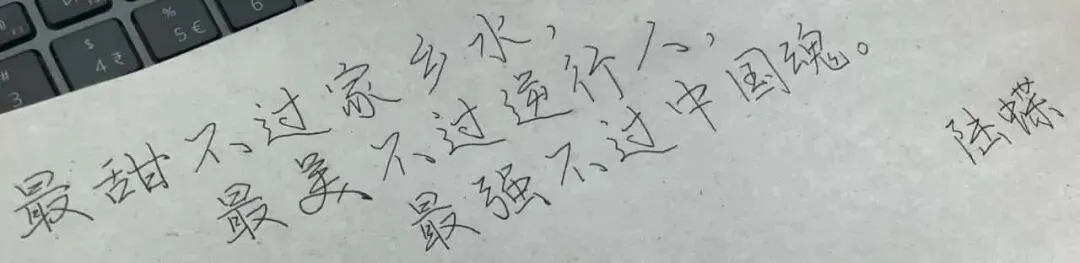 最甜不过家乡水，
最美不过逆行人，
最强不过中国魂。
陆蝶
$
4 ₹
%
5 €
6
#
3